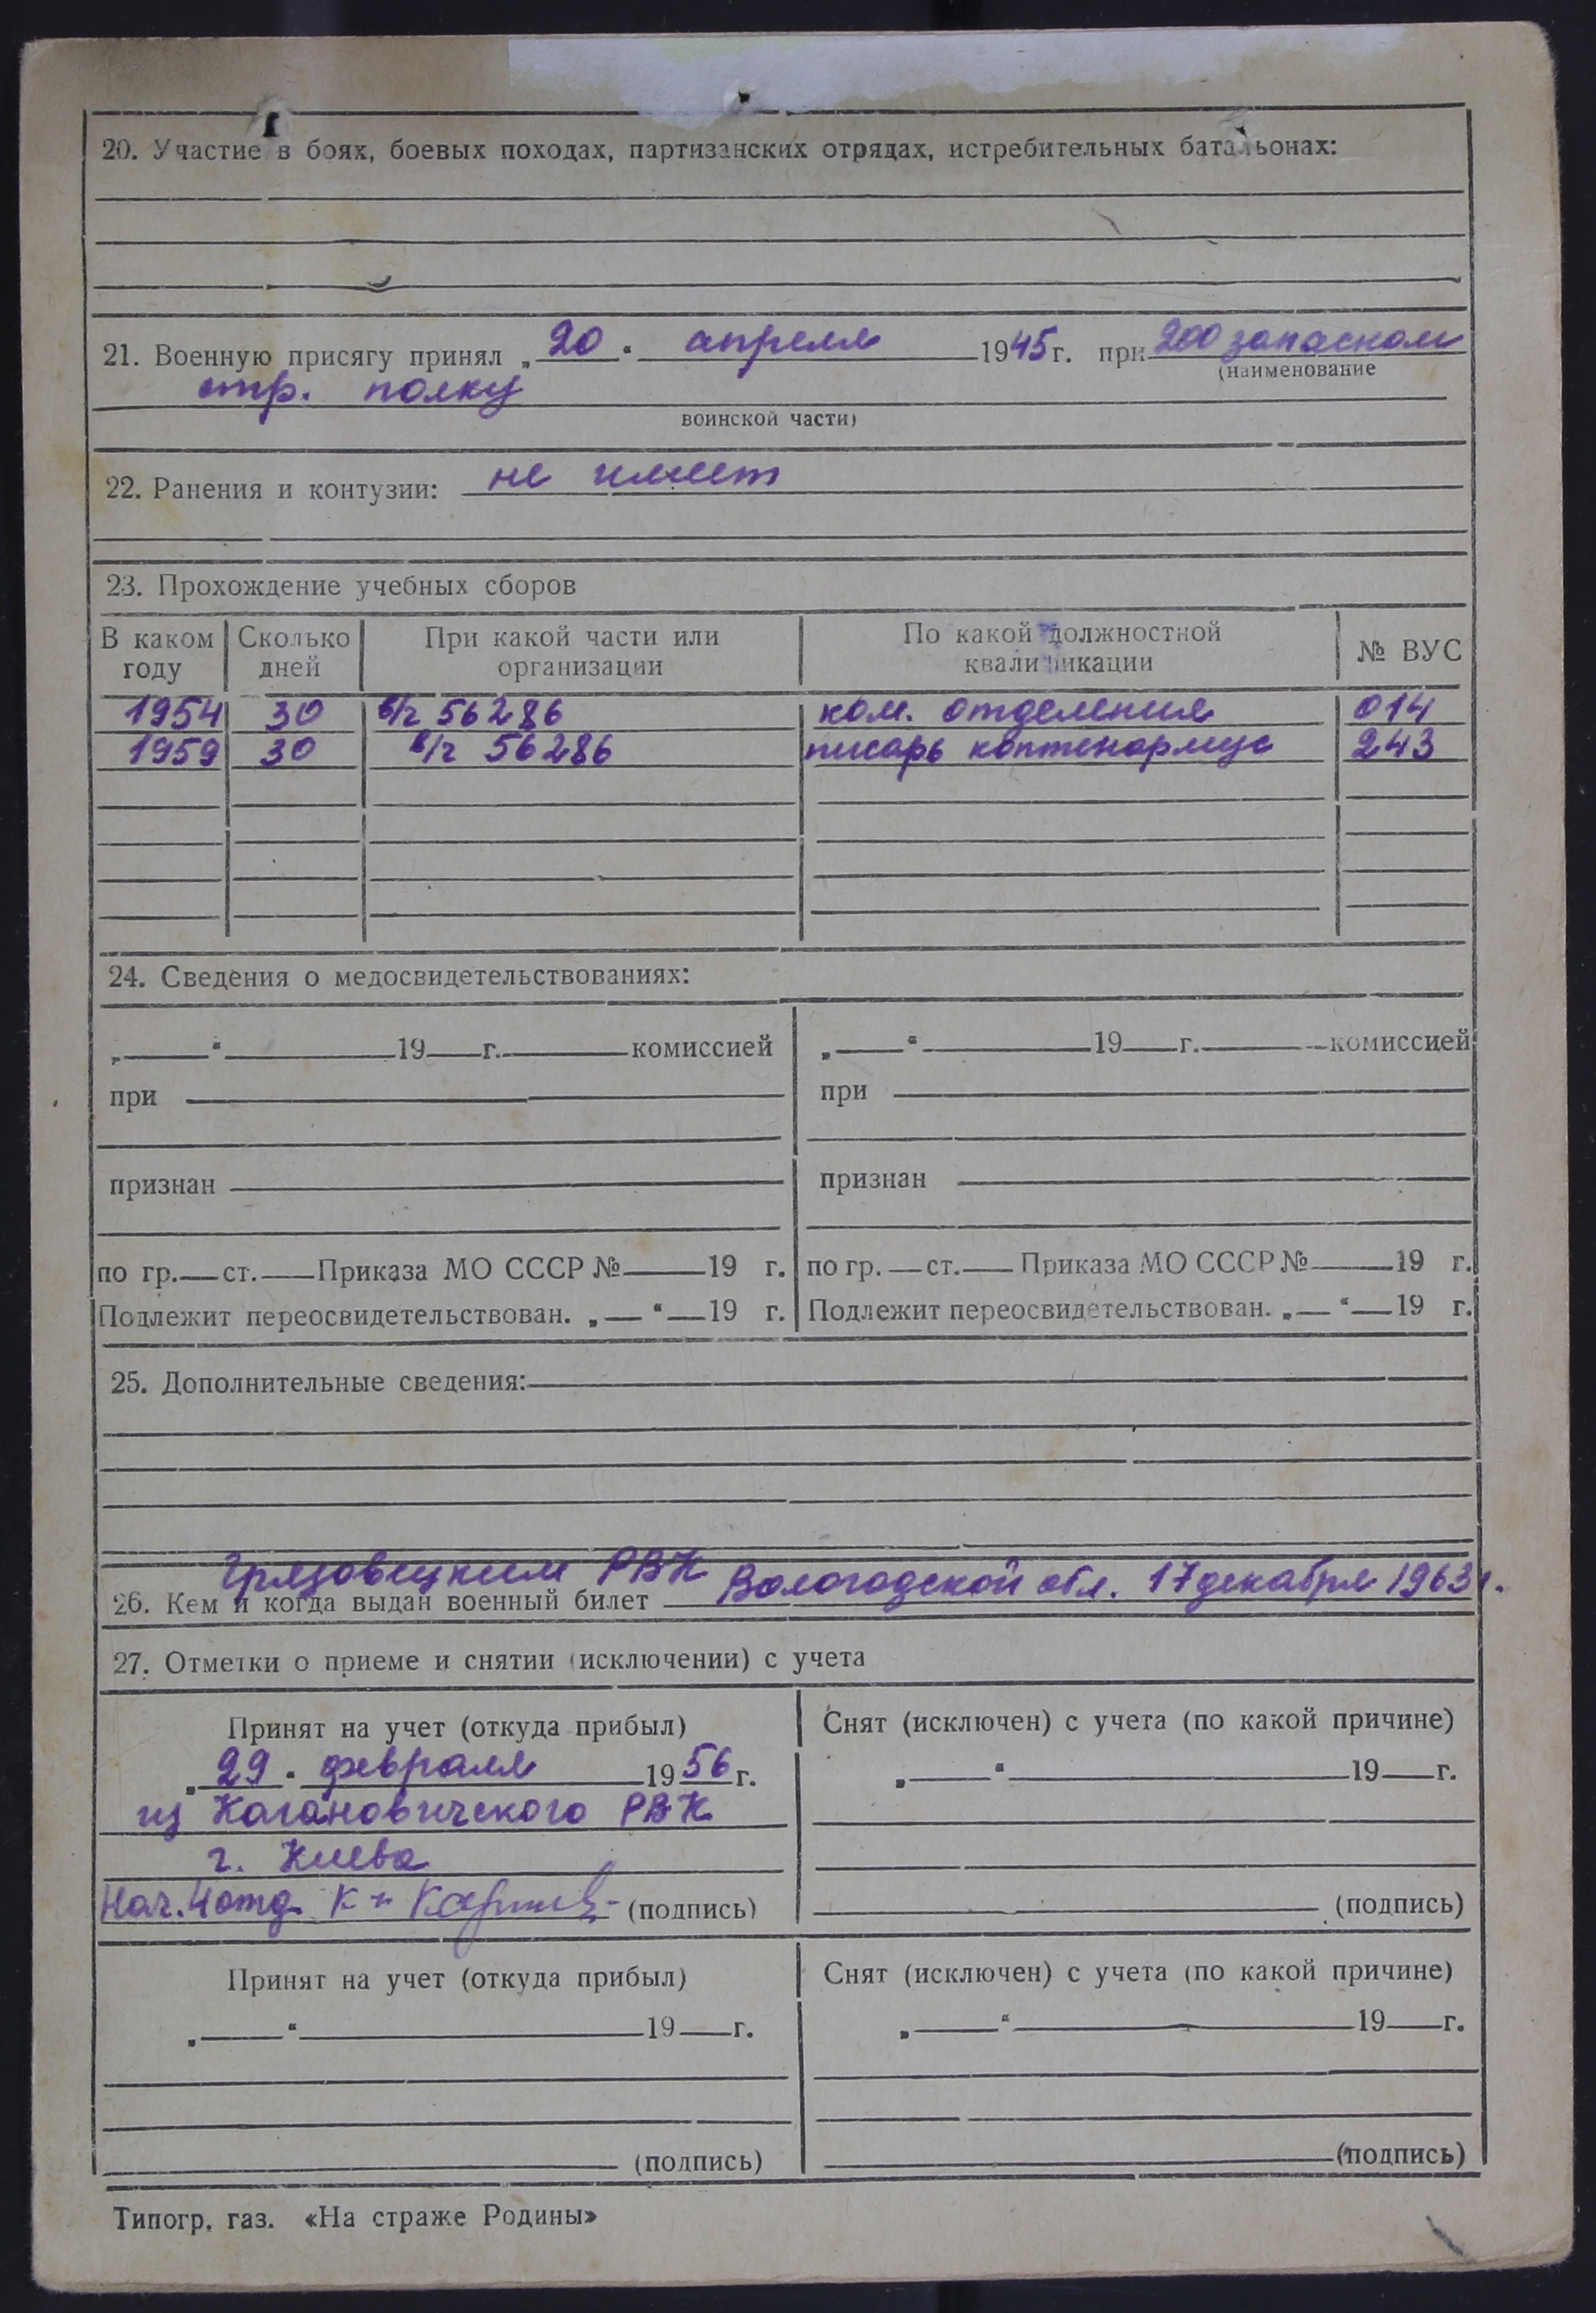 20. Участие в боях, боевых походах, партизанских отрядах, истребительных батальонах:
21. Военную присягу принял „20“ апреля 1945 г. при 200 запасном
(наименование
стр. полку
воинской части)
22. Ранения и контузии: не имеет
23. Прохождение учебных сборов
В каком году Сколько дней При какой части или организации По какой должностной квалификации № ВУС
1954 30 в/ч 56286 ком. отделения 014
1959 30 в/ч 56286 писарь каптенармус 243
24. Сведения о медосвидетельствованиях:
„ “ 19 г. комиссией „ “ 19 г. комиссией
при при
признан признан
по гр. ст. Приказа МО СССР № 19 г. по гр. ст. Приказа МО СССР № 19 г.
Подлежит переосвидетельствован. „ “ 19 г. Подлежит переосвидетельствован. „ “ 19 г.
25. Дополнительные сведения:
Грязовецким РВК Вологодской обл. 17 декабря 1963 г.
26. Кем и когда выдан военный билет
27. Отметки о приеме и снятии (исключении) с учета
Принят на учет (откуда прибыл) Снят (исключен) с учета (по какой причине)
„29“ февраля 1956 г. „ “ 19 г.
из Кагановичского РВК
г. Киева
Нач. 4 отд. к-н (подпись) (подпись)
Принят на учет (откуда прибыл) Снят (исключен) с учета (по какой причине)
„ “ 19 г. „ “ 19 г.
(подпись) (подпись)
Типогр. газ. «На страже Родины»